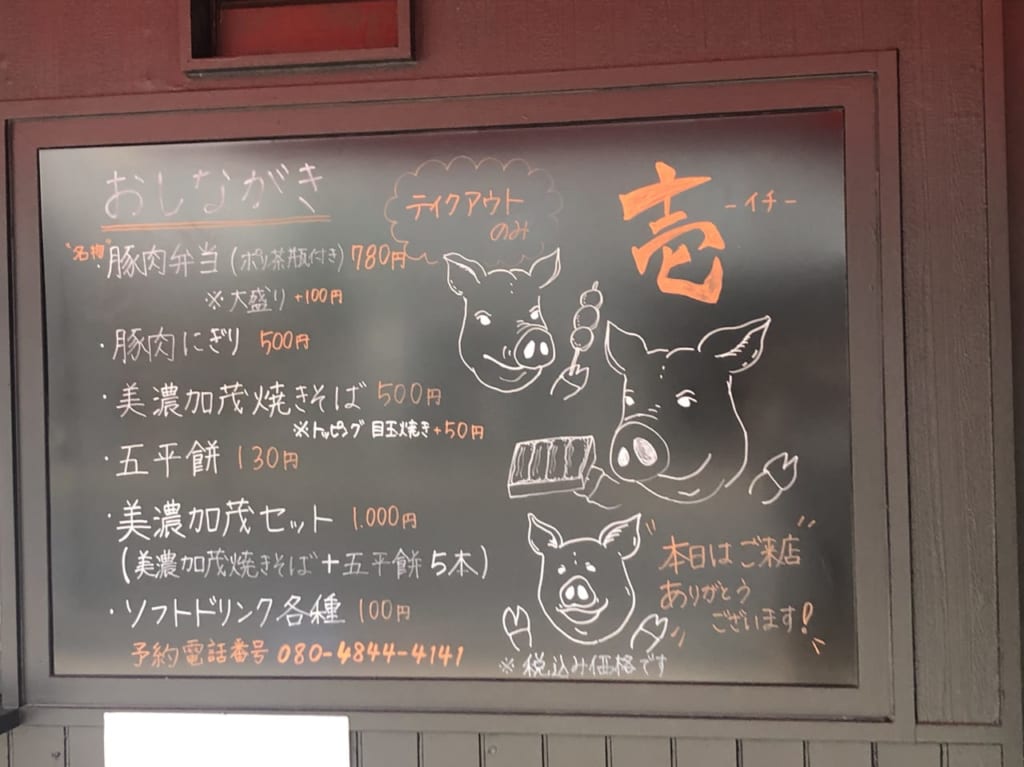 おしながき
テイクアウト
のみ
壱 -イチ-
"名物"
・豚肉弁当(ポリ茶瓶付き) 780円
※大盛り+100円
・豚肉にぎり 500円
・美濃加茂焼きそば 500円
※トッピング 目玉焼き+50円
・五平餅 130円
・美濃加茂セット 1.000円
(美濃加茂焼きそば+五平餅5本)
・ソフトドリンク各種 100円
予約電話番号 080-4844-4141
本日はご来店
ありがとう
ございます!
※税込み価格です